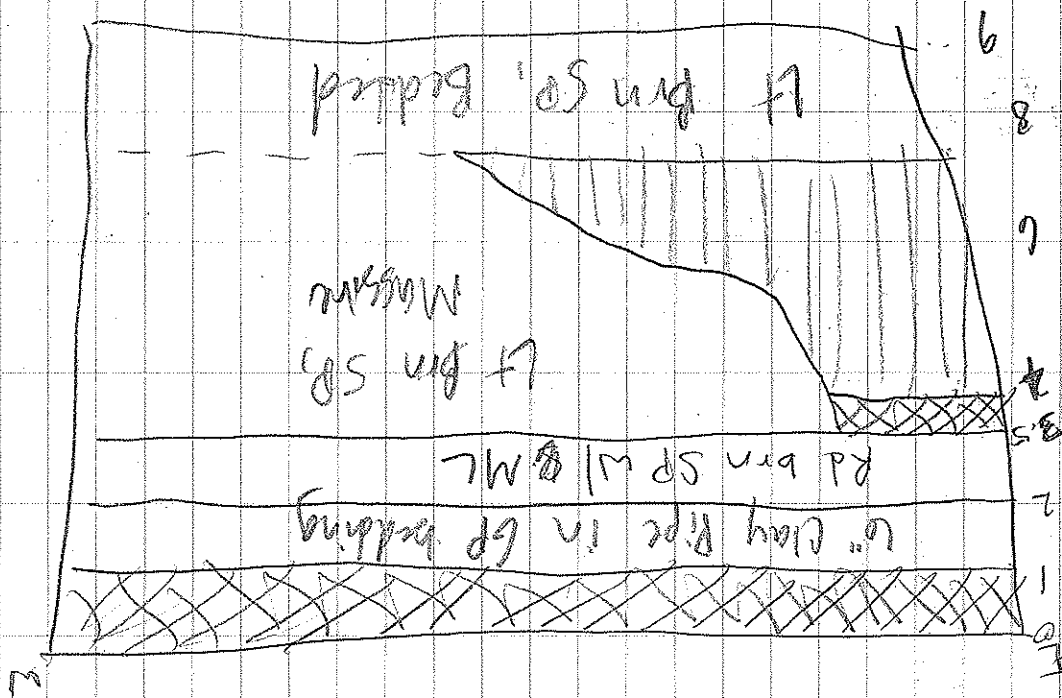 E W
0
1
6" Clay Pipe in GP bedding
2
Rd brn SP w/ ML
3.5
4
Lt Brn SP,
Massive
6
8
Lt Brn SP, Bedded
9